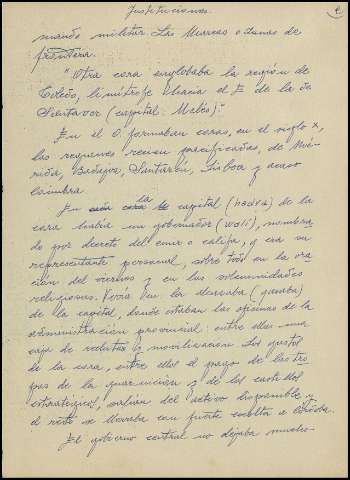 Instituciones.
mando militar. Las Marcas o zonas de
frontera.
"Otra cora englobaba la región de
Toledo, limítrofe hacia el E de la de
Santaver (capital: Uclés)".
En el O. formaban coras, en el siglo X,
las regiones recien pacificadas, de Mé-
rida, Badajoz, Santarén, Lisboa y acaso
Coimbra.
En la capital (hadra) de la
cora había un gobernador (wali), nombra
do por decreto del emir o califa, y era su
representante personal, sobre todo en la ora
ción del viernes y en las solemnidades
religiosas. Vivía en la alcazaba (qasaba)
de la capital, donde estaban las oficinas de la
administración provincial: entre ellas una
caja de reclutas y movilización. Los gastos
de la cora, entre ellos el pago de las tro
pas de la guarnición y de los castillos
estratégicos, salían del activo disponible, y
el resto se llevaba con fuerte escolta a Córdoba.
El gobierno central no dejaba mucho